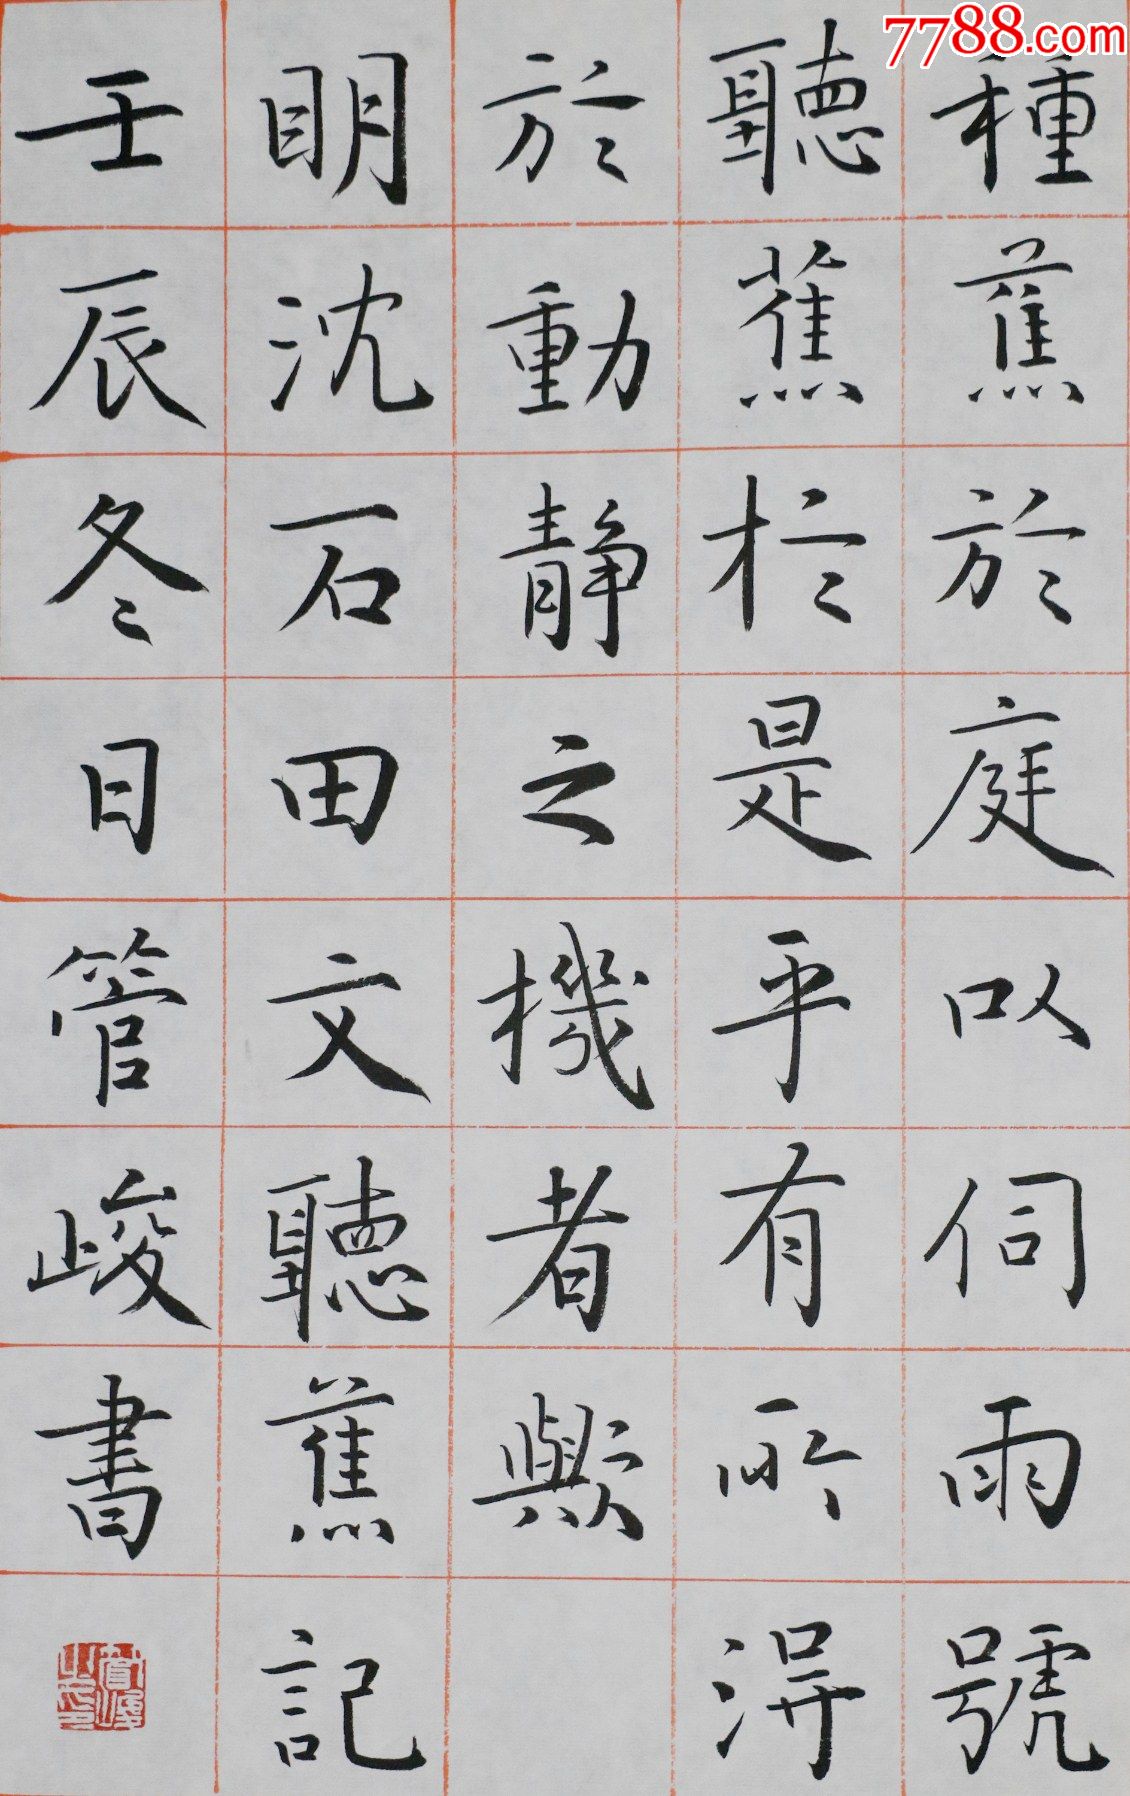 種蕉於庭以伺雨號
聽蕉於是乎有所得
於動靜之機者歟
明沈石田文聽蕉記
壬辰冬日管峻書
管峻之印
7788.com